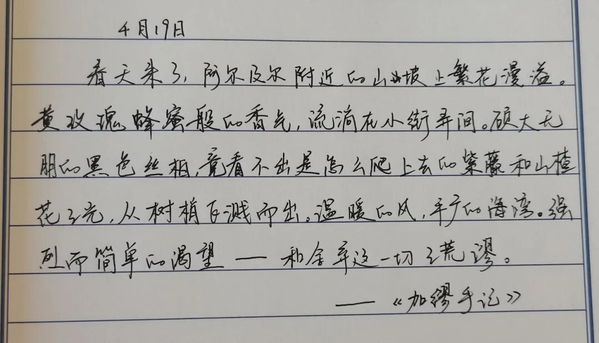 4月19日
春天来了,阿尔及尔附近的山坡上繁花漫溢。
黄玫瑰蜂蜜般的香气,流淌在小街寻间。硕大无
朋的黑色丝柏,竟看不出是怎么爬上去的紫藤和山楂
花之光,从树梢飞溅而出。温暖的风,平广的海湾。强
烈而简单的渴望——和舍弃这一切之荒谬。
——《加缪手记》